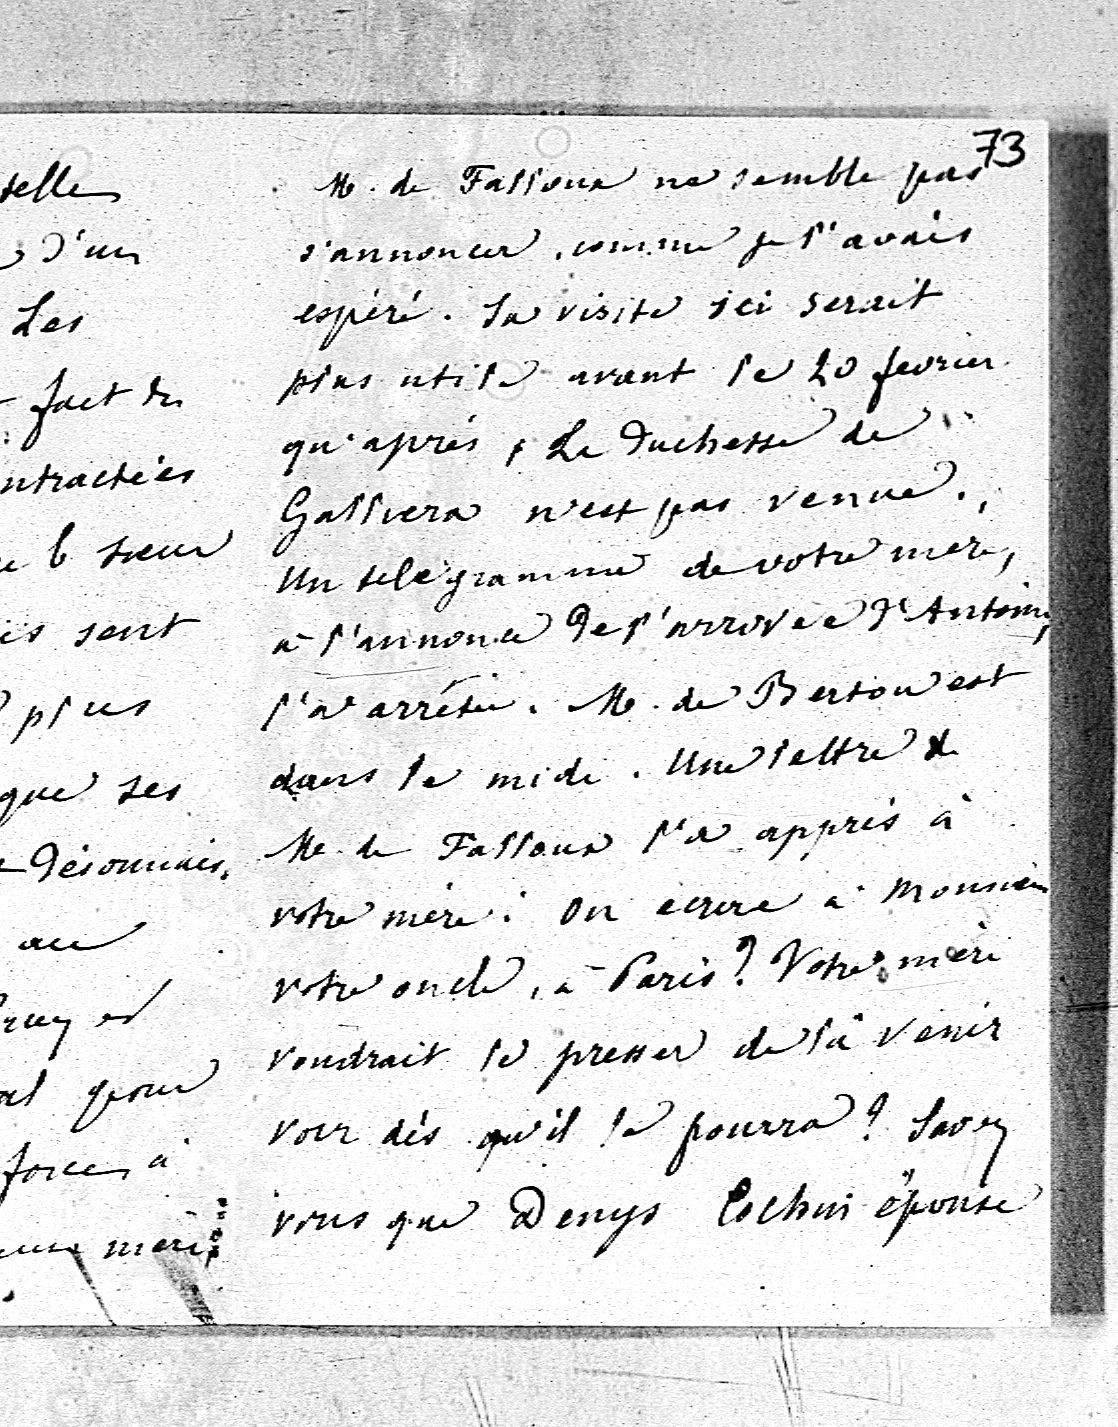 telles
d'un
Les
fact des
ntractées
sœur
sent
plus
que ses
désormais,
au
pour
forces à
mère,
73
M. de Falloux ne semble pas
s'annoncer, comme je l'avais
espéré. Sa visite ici serait
plus utile avant le 20 fevrier
qu'après. La Duchesse de
Galliera n'est pas venue.
Un télégramme de votre mère,
à l'annonce de l'arrivée d'Antoine,
l'a arrêtée. M. de Bertou est
dans le midi. Une lettre de
M. de Falloux l'a appris à
votre mère. On écrire à Monsieur
votre oncle, à Paris? Votre mère
voudrait le presser de la venir
voir dès qu'il le pourra? Savez
vous que Denys Cochin épouse